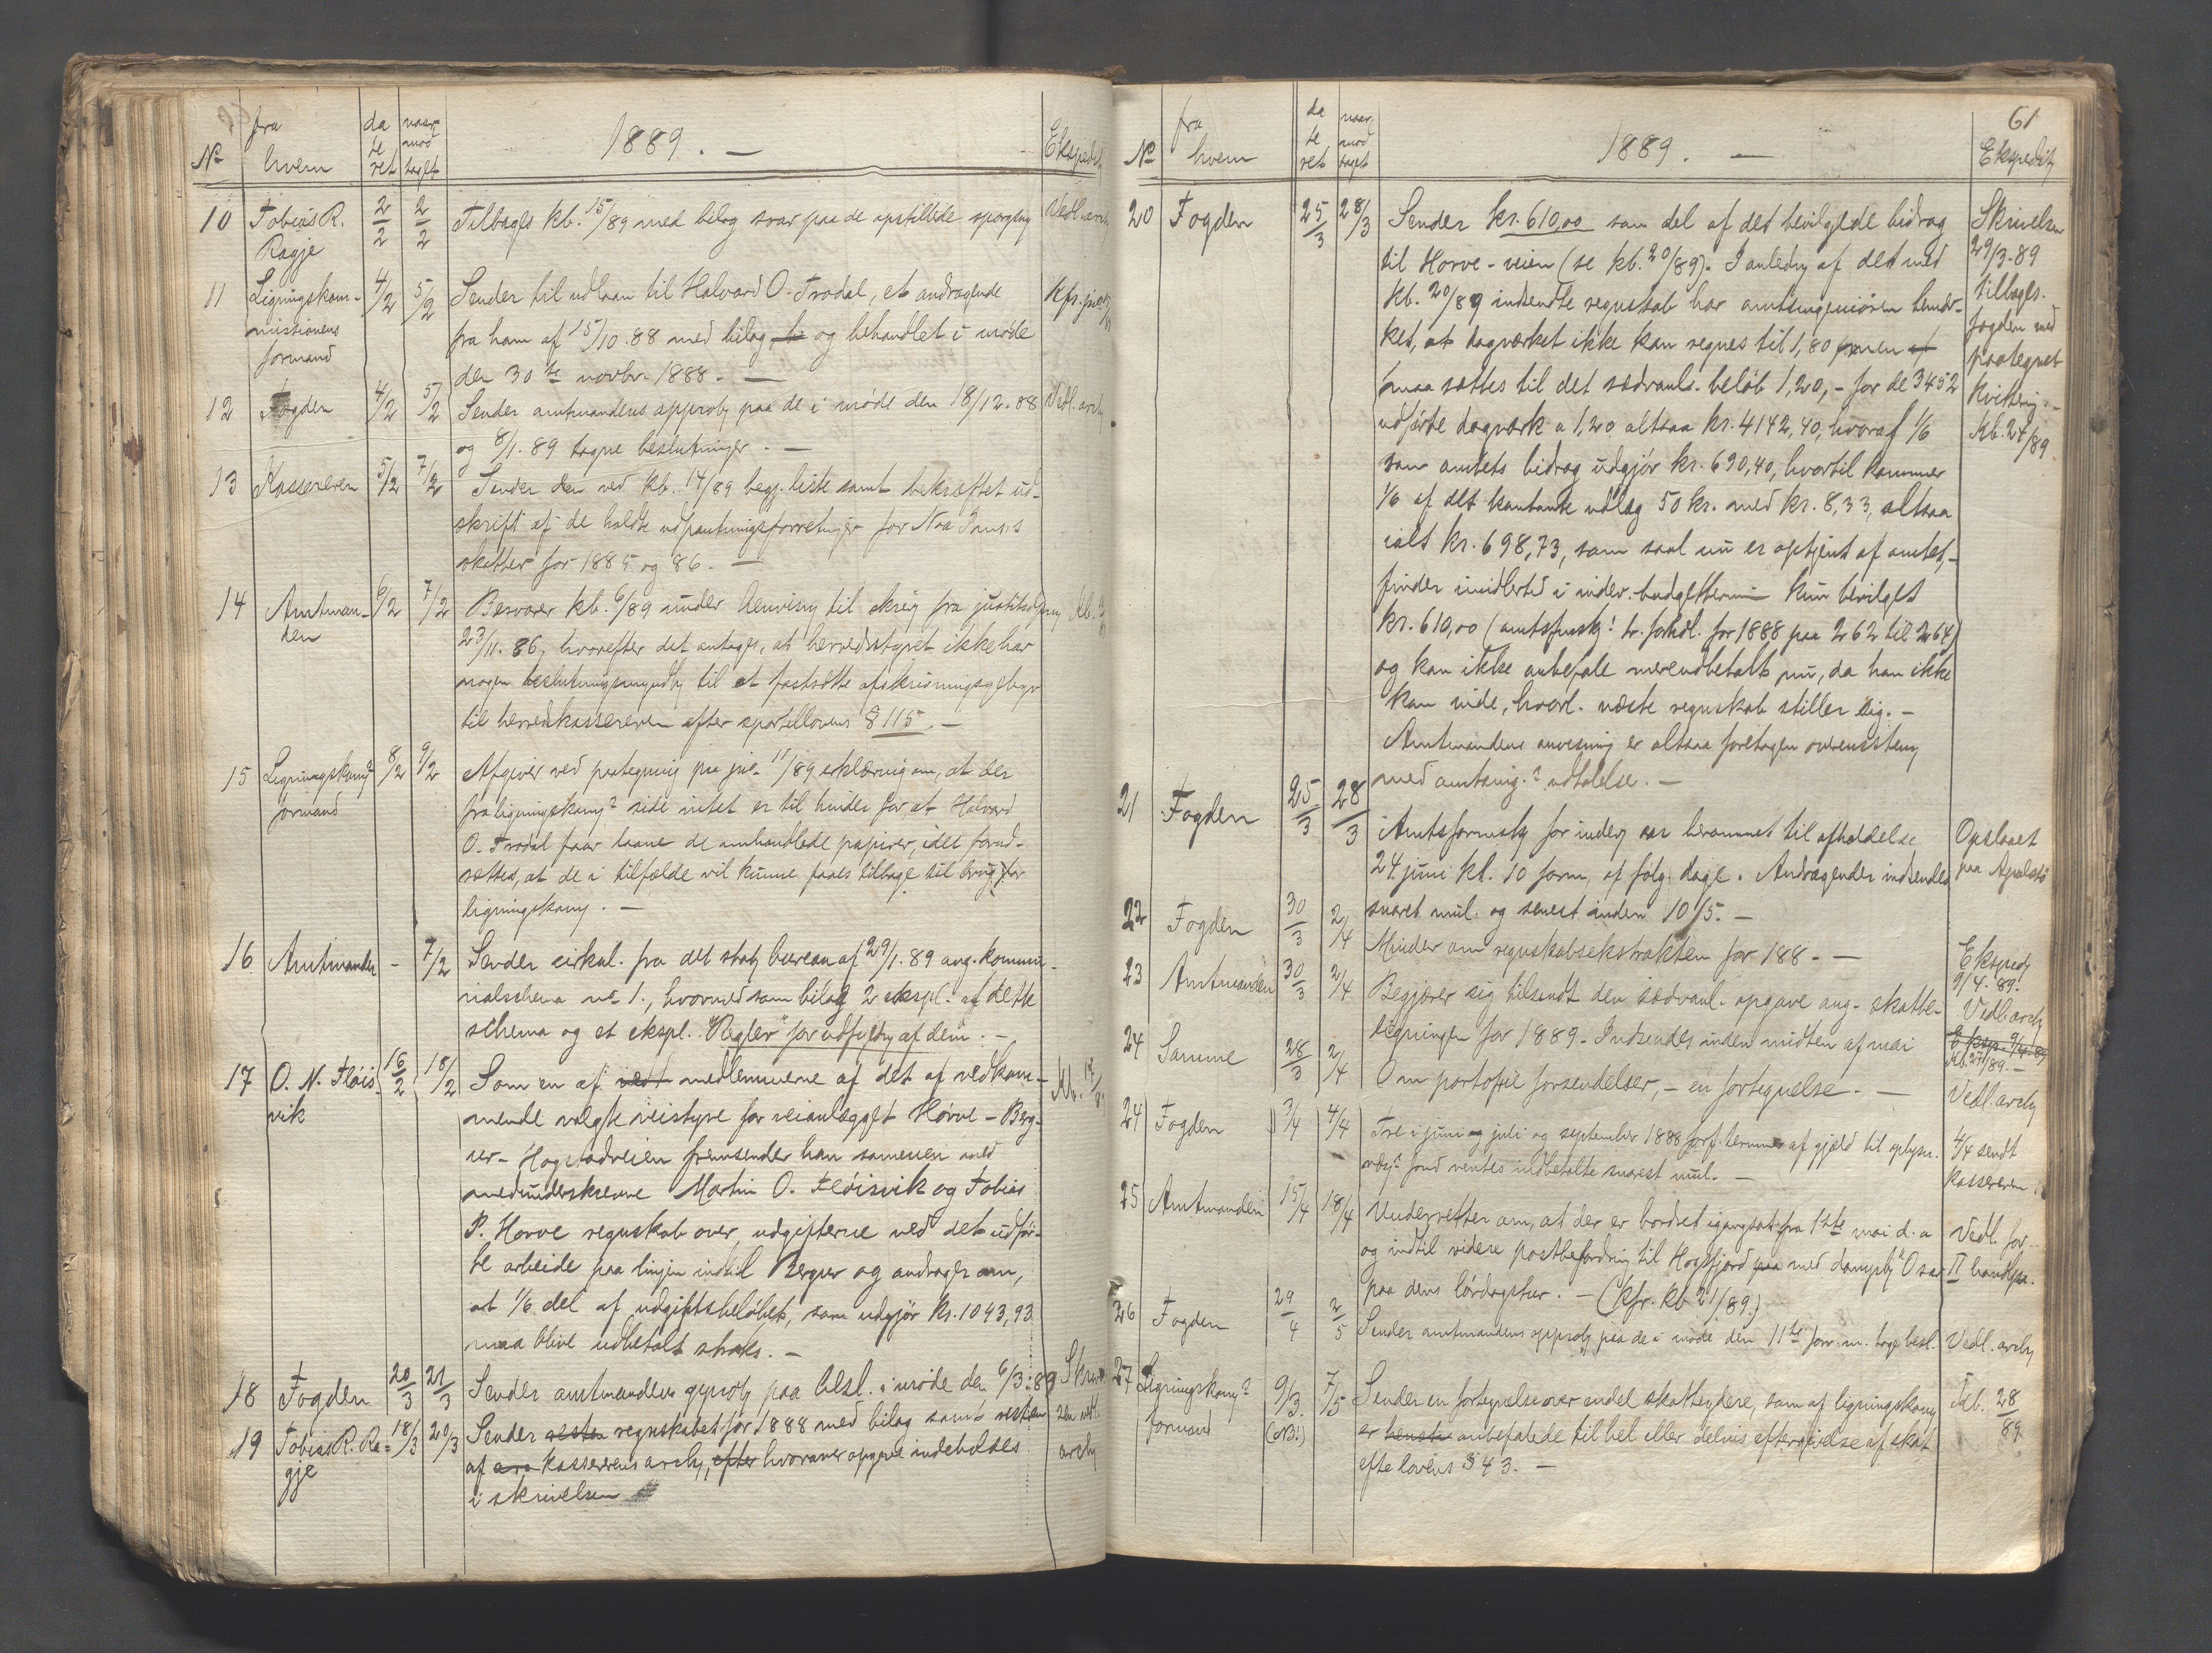 No
fra
hvem
da
te
ret
naar
mod
taget
1889. —
Ekspedit
10 Tobias R. 2/2 2/2 Tilbages kb. 15/89 med bilag svar paa de opstillede spørgsmg Vedl. arch
Ragje
11 Ligningskom- 4/2 5/2 Sender til udlaan til Halvard O. Frodal, et andragende Kfr. jnr
missionens fra ham af 15/10.88 med bilag og behandlet i møde
formand den 30te novbr. 1888. —
12 Fogden 4/2 5/2 Sender amtmandens approb. paa de i møde den 18/12.88 Vedl. arch
og 8/1.89 tagne beslutninger. —
13 Kassereren 5/2 7/2 Sender den ved kb. 14/89 begj. liste samt bekræftet ud-
skrift af de holdte udpantningsforretninger for
skatter for 1885 og 86. —
14 Amtman- 6/2 7/2 Besvarer kb. 6/89 under henvisng til skriv. fra justitsdeptm Kb.
den 23/11.86, hvorefter det antages, at herredsstyret ikke har
nogen beslutningsmyndh. til at fastsætte afskrivningsgebyr
til herredskassereren efter sportellovens § 115. —
15 Ligningskom? 8/2 9/2 Afgiver ved paategning paa jnr. 11/89 erklæring om, at der
formand fra ligningskom? side intet er til hinder for, at Halvard
O. Frodal faar laane de omhandlede papirer, idet forud-
sættes, at de i tilfælde vil kunne faaes tilbage til brug for
ligningskom. —
16 Amtmanden - 7/2 Sender cirkul. fra det stat. bureau af 29/1.89 ang. kommu-
nalschema no 1., hvormed som bilag 2 ekspl. af dette
schema og et ekspl. "Regler" for udfyldng af dem. —
17 O. N. Fløis- 16/2 18/2 Som en af vedt medlemmerne af det af vedkom- Kb. 17/8
vik mende valgte veistyre for veianlægget Hørve - Berg-
ser - Hogstadveien fremsender han sammen med
medunderskrevne Martin O. Fløisvik og Tobias
P. Horve regnskab over udgifterne ved det udfør-
te arbeide paa linjen indtil Berger og andrager om,
at 1/6 del af udgiftsbeløbet, som udgjør kr. 1043,93
maa blive udbetalt straks. —
18 Fogden 20/3 21/3 Sender amtmandens approb. paa besl. i møde den 6/3.89 Skrivel
19 Tobias R. Ra- 18/3 20/3 Sender resten regnskabet for 1888 med bilag samt resten sen vedl.
gje af are kassererens arch., efter hvorover opgave indeholdes arch
i skrivelsen
61
No
fra
hvem
da
te
ret
naar
mod
taget
1889. —
Ekspedit
20 Fogden 25/3 28/3 Sender kr. 610,00 som del af det bevilgede bidrag Skrivelsen
til Horve-veien (se kb. 20/89). I anledng af det med 29/3.89
kb. 20/89 indsendte regnskab har amtsingeniøren bemær- tilbages.
ket, at dagværket ikke kan regnes til 1,80 men fogden med
maa sættes til det sædvanl. beløb 1,20, - for de 3452 paategnet
udførte dagværk a 1,20 altsaa kr. 4142,40, hvoraf 1/6 kvittering. —
som amtets bidrag udgjør kr. 690,40, hvortil kommer Kb. 24/89.
1/6 af det kontante udlæg 50 kr. med kr. 8,33, altsaa
ialt kr. 698,73, som saal. nu er optjent af amtet, -
finder imidlertid i inder. budgettermin kun bevilget
kr. 610,00 (amtsformsk! tr. forhdl. for 1888 paa 262 til 264)
og kan ikke anbefale merendbetalt nu, da han ikke
kan vide, hvorl. næste regnskab stiller sig. —
Amtmandens anvisning er altsaa foretagen overensstemm
med amtsing.? udtalelse. —
21 Fogden 25/3 28/3 Amtsformsk for inderv. er berammet til afholdelse Opslaaet
24 juni kl. 10 form. og følg. dage. Andragender indsendes paa
snaret mul. og senest inden 10/5. —
22 Fogden 30/3 2/4 Minder om regnskabsekstrakten for 188- — Eksped
9/4.89.
23 Amtmanden 30/3 2/4 Begjærer sig tilsendt den sædvanl. opgave ang. skatte- Vedl. arch
ligningen for 1889. Indsendes inden midten af mai Eksp. 9/4.89
Kb. 27/89. —
24 Samme 28/3 2/4 Om portofrie forsendelser, - en fortegnelse. — Vedl. arch
24 Fogden 3/4 4/4 Fre i juni og juli og september 1888 forf. terminer af gjæld til oplysn. 4/4 sendt
fond ventes indbetalte snarest mul. — kassereren.
25 Amtmanden 15/4 18/4 Underretter om, at der er bordset igangsat fra 1ste mai d. a Vedl. for-
og indtil videre postbefordring til Høgsfjord paa med dampsk. "Oscar II" handlpr.
paa dens lørdagstur. — (kfr. kb 21/89.)
26 Fogden 29/4 2/5 Sender amtmandens approb. paa de i møde den 11te forr. m. tagne besl. Vedl. arch
27 Ligningskom? 9/3. 7/5 Sender en fortegnelse over endel skatteydere, som af ligningskom Kb. 28/89
formand (NB!) er henstr anbefalede til hel eller delvis eftergivelse af skat
efter lovens § 43. —